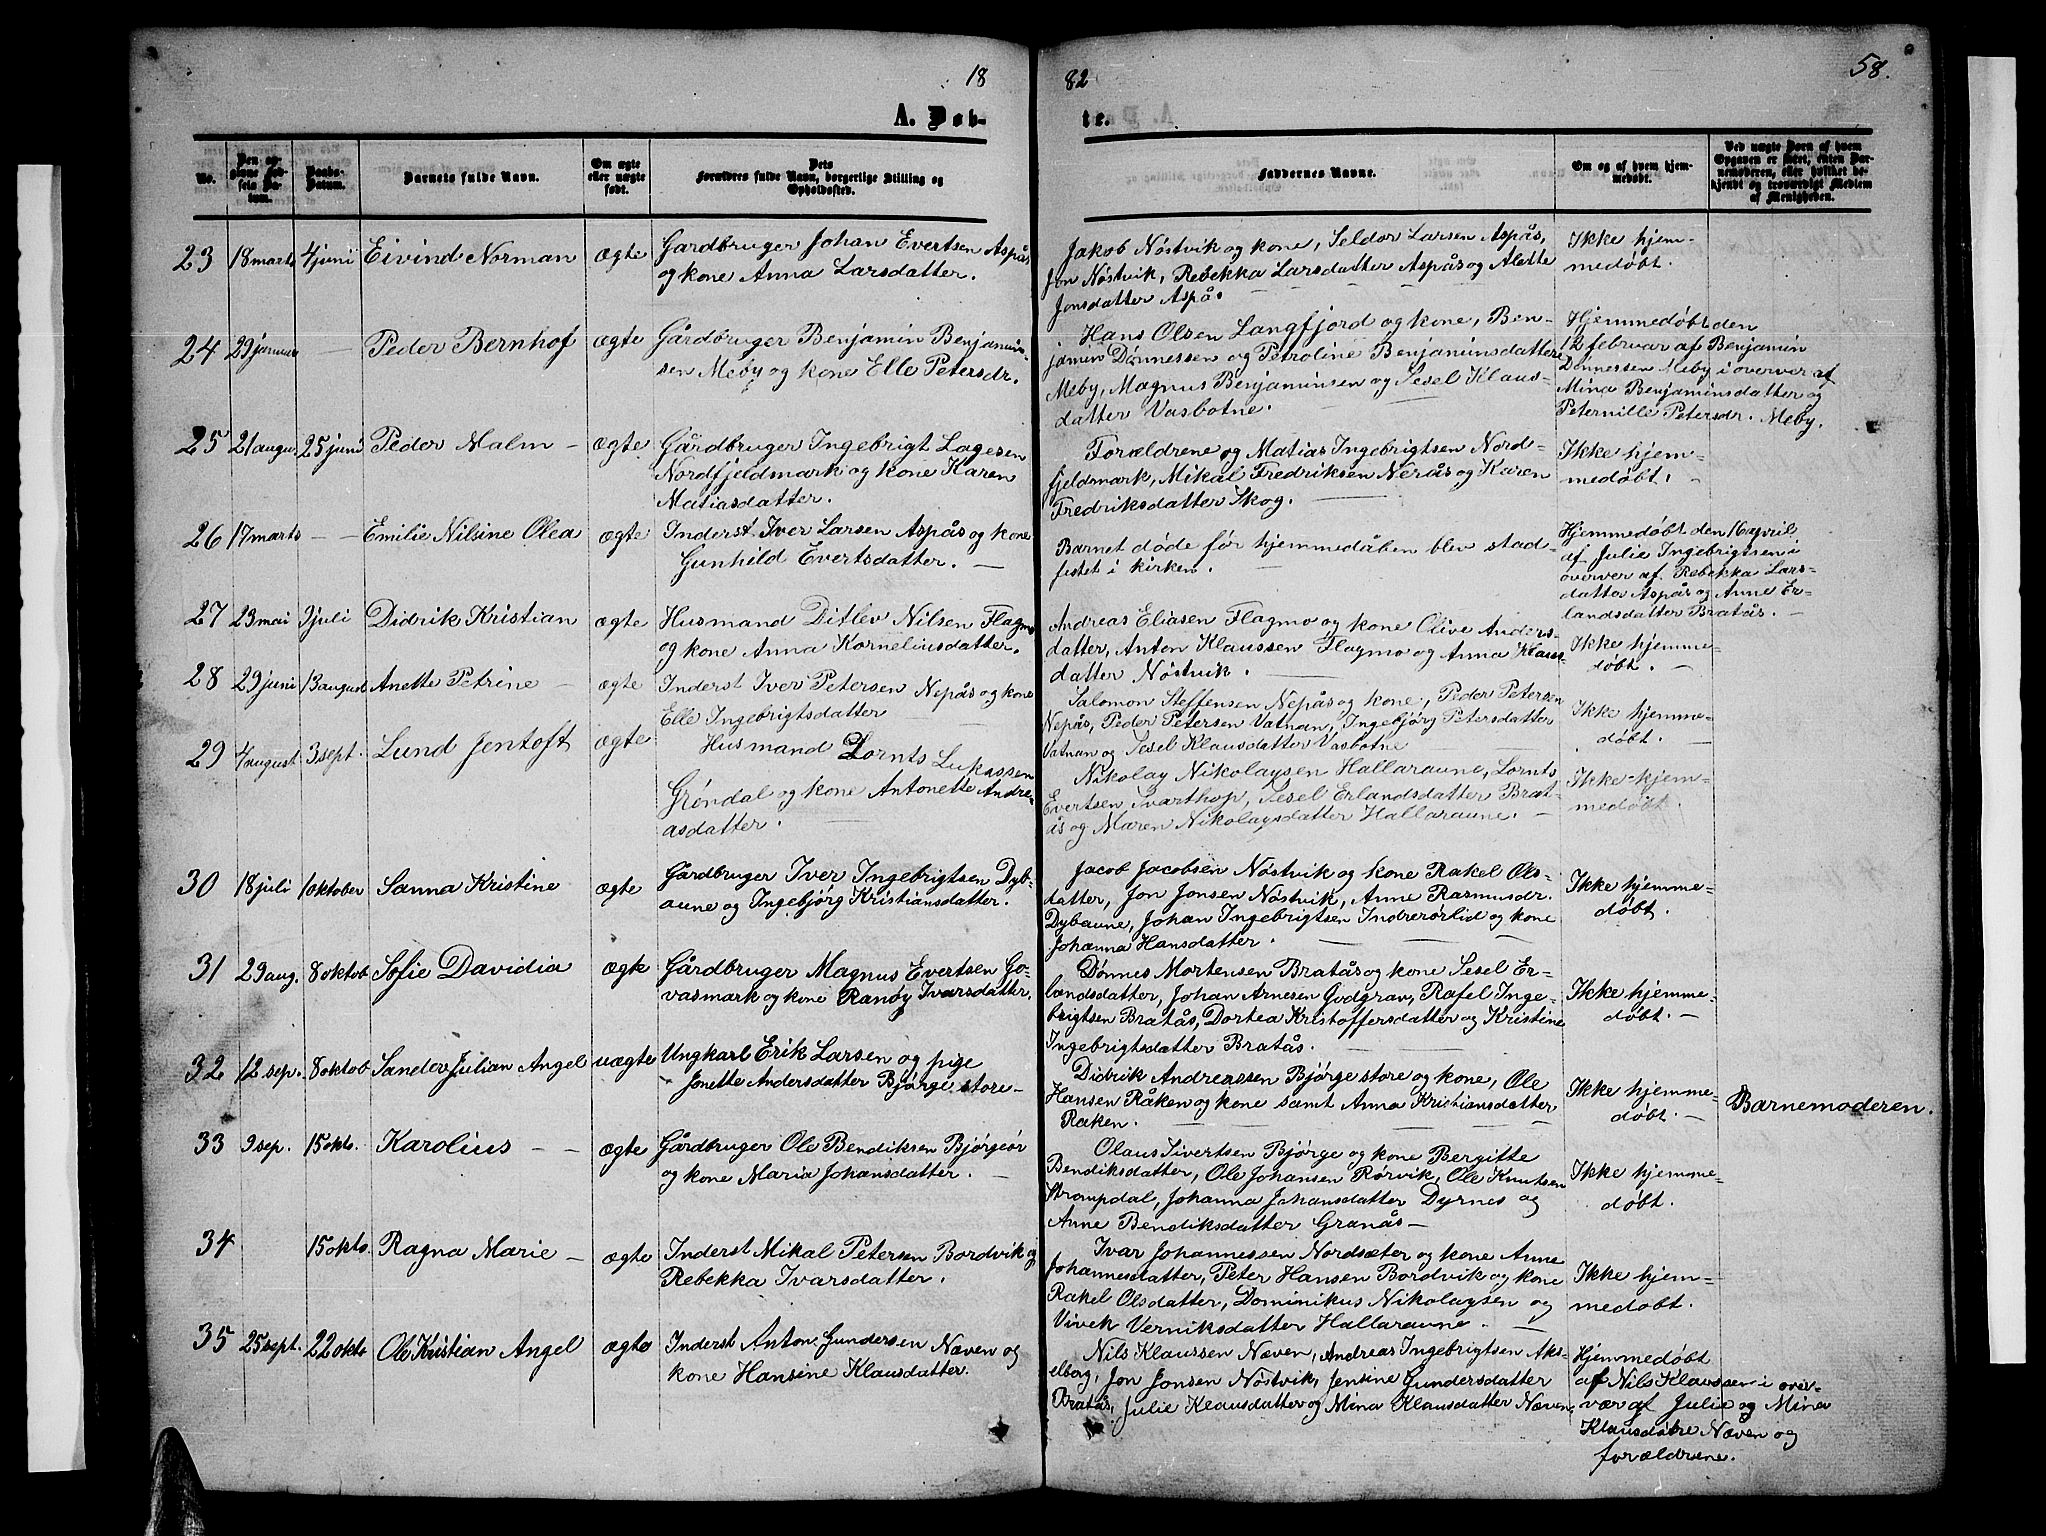 18
82
58.
A. Døb-
te.
No.
Den op-
givne Fød-
sels Da-
tum.
Daabs-
Datum.
Barnets fulde Navn.
Om ægte
eller uægte
født.
Dets
Forældres fulde Navn, borgerlige Stilling og
Opholdssted.
Faddernes Navne.
Om og af hvem hjem-
medøbt.
Ved uægte Børn af hvem
Opgaven er skeet, enten Bar-
nemoderen, eller hvilket be-
kjendt og troværdigt Medlem
af Menigheden.
23 18 marts 4 juni Eivind Norman ægte Gårdbruger Johan Evertsen Aspås
og kone Anna Larsdatter.
Jakob Nöstvik og kone, Seldor Larsen Aspås,
Jon Nöstvik, Rebekka Larsdatter Aspås og Alette
Jonsdatter Aspås.
Ikke hjem-
medøbt.
24 29 januar — Peder Bernhof ægte Gårdbruger Benjamin Benjamin-
sen Meby og kone Elle Petersdr.
Hans Olsen Langfjord og kone, Ben-
jamin Dønnessen og Petroline Benjaminsdatter
Meby, Magnus Benjaminsen og Sesel Klaus-
datter Vasbotne.
Hjemmedøbt den
12 februar af Benjamin
Dønnessen Meby i overver af
Mina Benjaminsdatter og
Peternille Petersdr. Meby.
25 21 august 25 juni Peder Malm — ægte Gårdbruger Ingebrigt Lagesen
Nordfjeldmark og kone Karen
Matiasdatter.
Forældrene og Matias Ingebrigtsen Nord-
fjeldmark, Mikal Fredriksen Nerås og Karen
Fredriksdatter Skog.
Ikke hjem-
medøbt.
26 17 marts — Emilie Nilsine Olea ægte Inderst Iver Larsen Aspås og kone
Gunhild Evertsdatter. —
Barnet døde før hjemmedåben blev stad-
festet i kirken.
Hjemmedøbt den 16 april
af Julie Ingebrigtsen i
overver af Rebekka Lars-
datter Aspås og Anne Er-
landsdatter Bratås. —
27 23 mai 9 juli Didrik Kristian ægte Husmand Ditlev Nilsen Flagmo
og kone Anna Korneliusdatter.
Andreas Eliasen Flagmo og kone Olive Anders-
datter, Anton Klaussen Flagmo og Anna Klaus-
datter Nöstvik.
Ikke hjemme-
døbt. —
28 29 juni 13 august Anette Petrine — ægte Inderst Iver Petersen Nepås og kone
Elle Ingebrigtsdatter
Salomon Steffensen Nepås og kone, Peder Petersen
Nepås, Peder Petersen Vatnan, Ingebjørg Petersdatter
Vatnan og Sesel Klausdatter Vasbotne
Ikke hjemme-
døbt. —
29 4 august 3 sept. Lund Jentoft ægte Husmand Lornts Lukassen
Grøndal og kone Antonette Andre-
asdatter. —
Nikolay Nikolaysen Hallaraune, Lornts
Evertsen Svarthop, Sesel Erlandsdatter Brat-
ås og Maren Nikolaysdatter Hallaraune. —
Ikke hjem-
medøbt.
30 18 juli 1 oktober Sanna Kristine ægte Gårdbruger Iver Ingebrigtsen Dyb-
aune og Ingebjørg Kristiansdatter.
Jacob Jacobsen Nöstvik og kone Rakel Ols-
datter, Jon Jonsen Nöstvik, Anne Rasmusdr.
Dybaune, Johan Ingebrigtsen Indrerørlid og kone
Johanna Hansdatter.
Ikke hjemme-
døbt.
31 29 aug. 8 oktob. Sofie Davidia ægte Gårdbruger Magnus Evertsen Go-
vasmark og kone Ranøy Ivarsdatter.
Dønnes Mortensen Bratås og kone Sesel Er-
landsdatter, Johan Arnesen Godgrav, Rafel Inge-
brigtsen Bratås, Dortea Kristoffersdatter og Kristine
Ingebrigtsdatter Bratås.
Ikke hjemme-
døbt. —
32 12 sep. 8 oktob Sander Julian Angel uægte Ungkarl Erik Larsen og pige
Jonette Andersdatter Bjørge store —
Didrik Andreassen Bjørge store og kone, Ole
Hansen Råken og kone samt Anna Kristiansdatter
Råken.
Ikke hjemme-
døbt. —
Barnemoderen.
33 9 sep. 15 okto. Karolius — — ægte Gårdbruger Ole Bendiksen Bjørgeör
og kone Maria Johansdatter. —
Olaus Sivertsen Bjørge og kone Bergitte
Bendiksdatter, Ole Johansen Rørvik, Ole Knutsen
Strompdal, Johanna Johansdatter Dyrnes og
Anne Bendiksdatter Granås —
Ikke hjemme-
døbt.
34 15 okto. Ragna Marie — ægte Inderst Mikal Petersen Bordvik og
Rebekka Ivarsdatter.
Ivar Johannessen Nordsæter og kone Anne
Johannesdatter, Peter Hansen Bordvik og kone
Rakel Olsdatter, Dominikus Nikolaysen og
Vivek Verniksdatter Hallaraune. —
Ikke hjem-
medøbt.
35 25 sept. 22 okto Ole Kristian Angel ægte Inderst Anton Gundersen Næven og
kone Hansine Klausdatter.
Nils Klaussen Næven, Andreas Ingebrigtsen Aks-
elborg, Jon Jonsen Nöstvik, Jensine Gundersdatter
Bratås, Julie Klausdatter og Mina Klausdatter Næven.
Hjemmedøbt
af Nils Klaussen i over-
vær af Julie og Mina
Klausdøtre Næven og
forældrene.